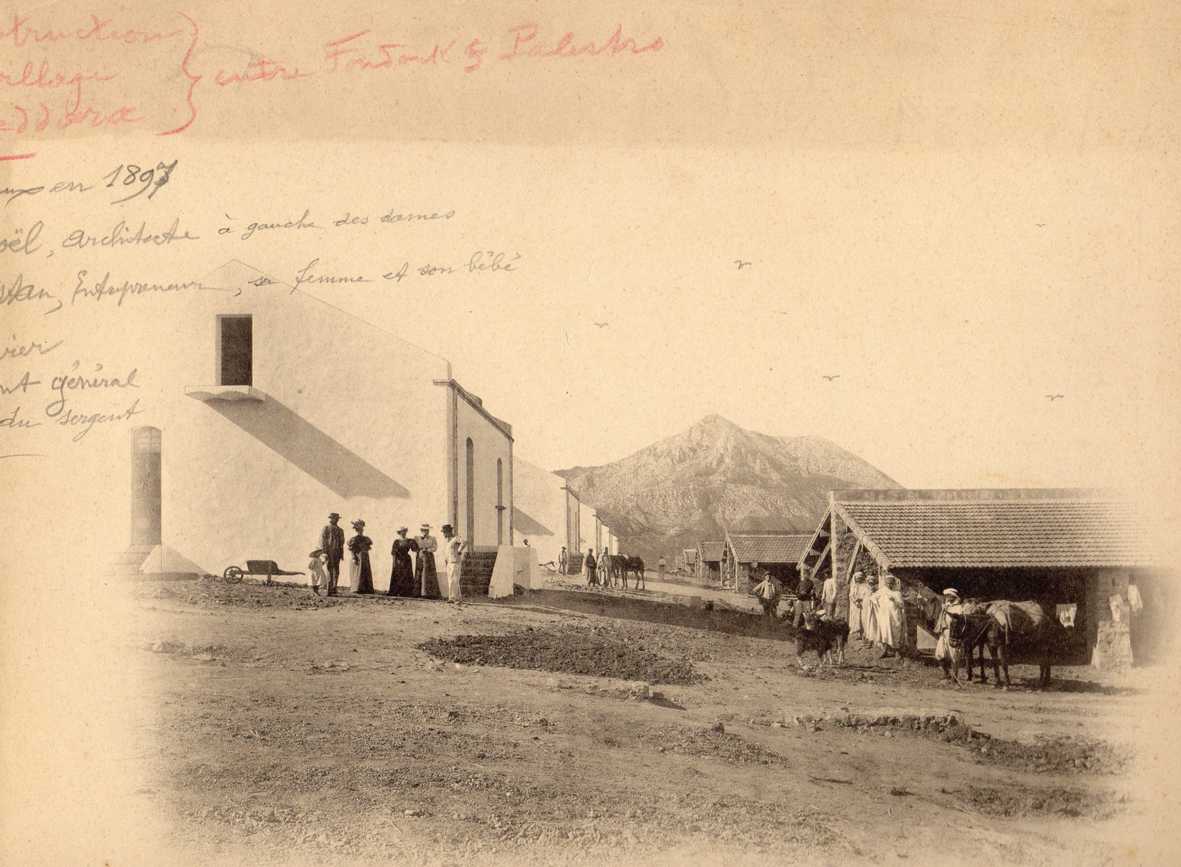 struction
village } entre Fondouk & Palestro
eddara
ux en 1897
oël, Architecte à gauche des dames
stan, Entrepreneur, sa femme et son bébé
vier
nt général
du sergent